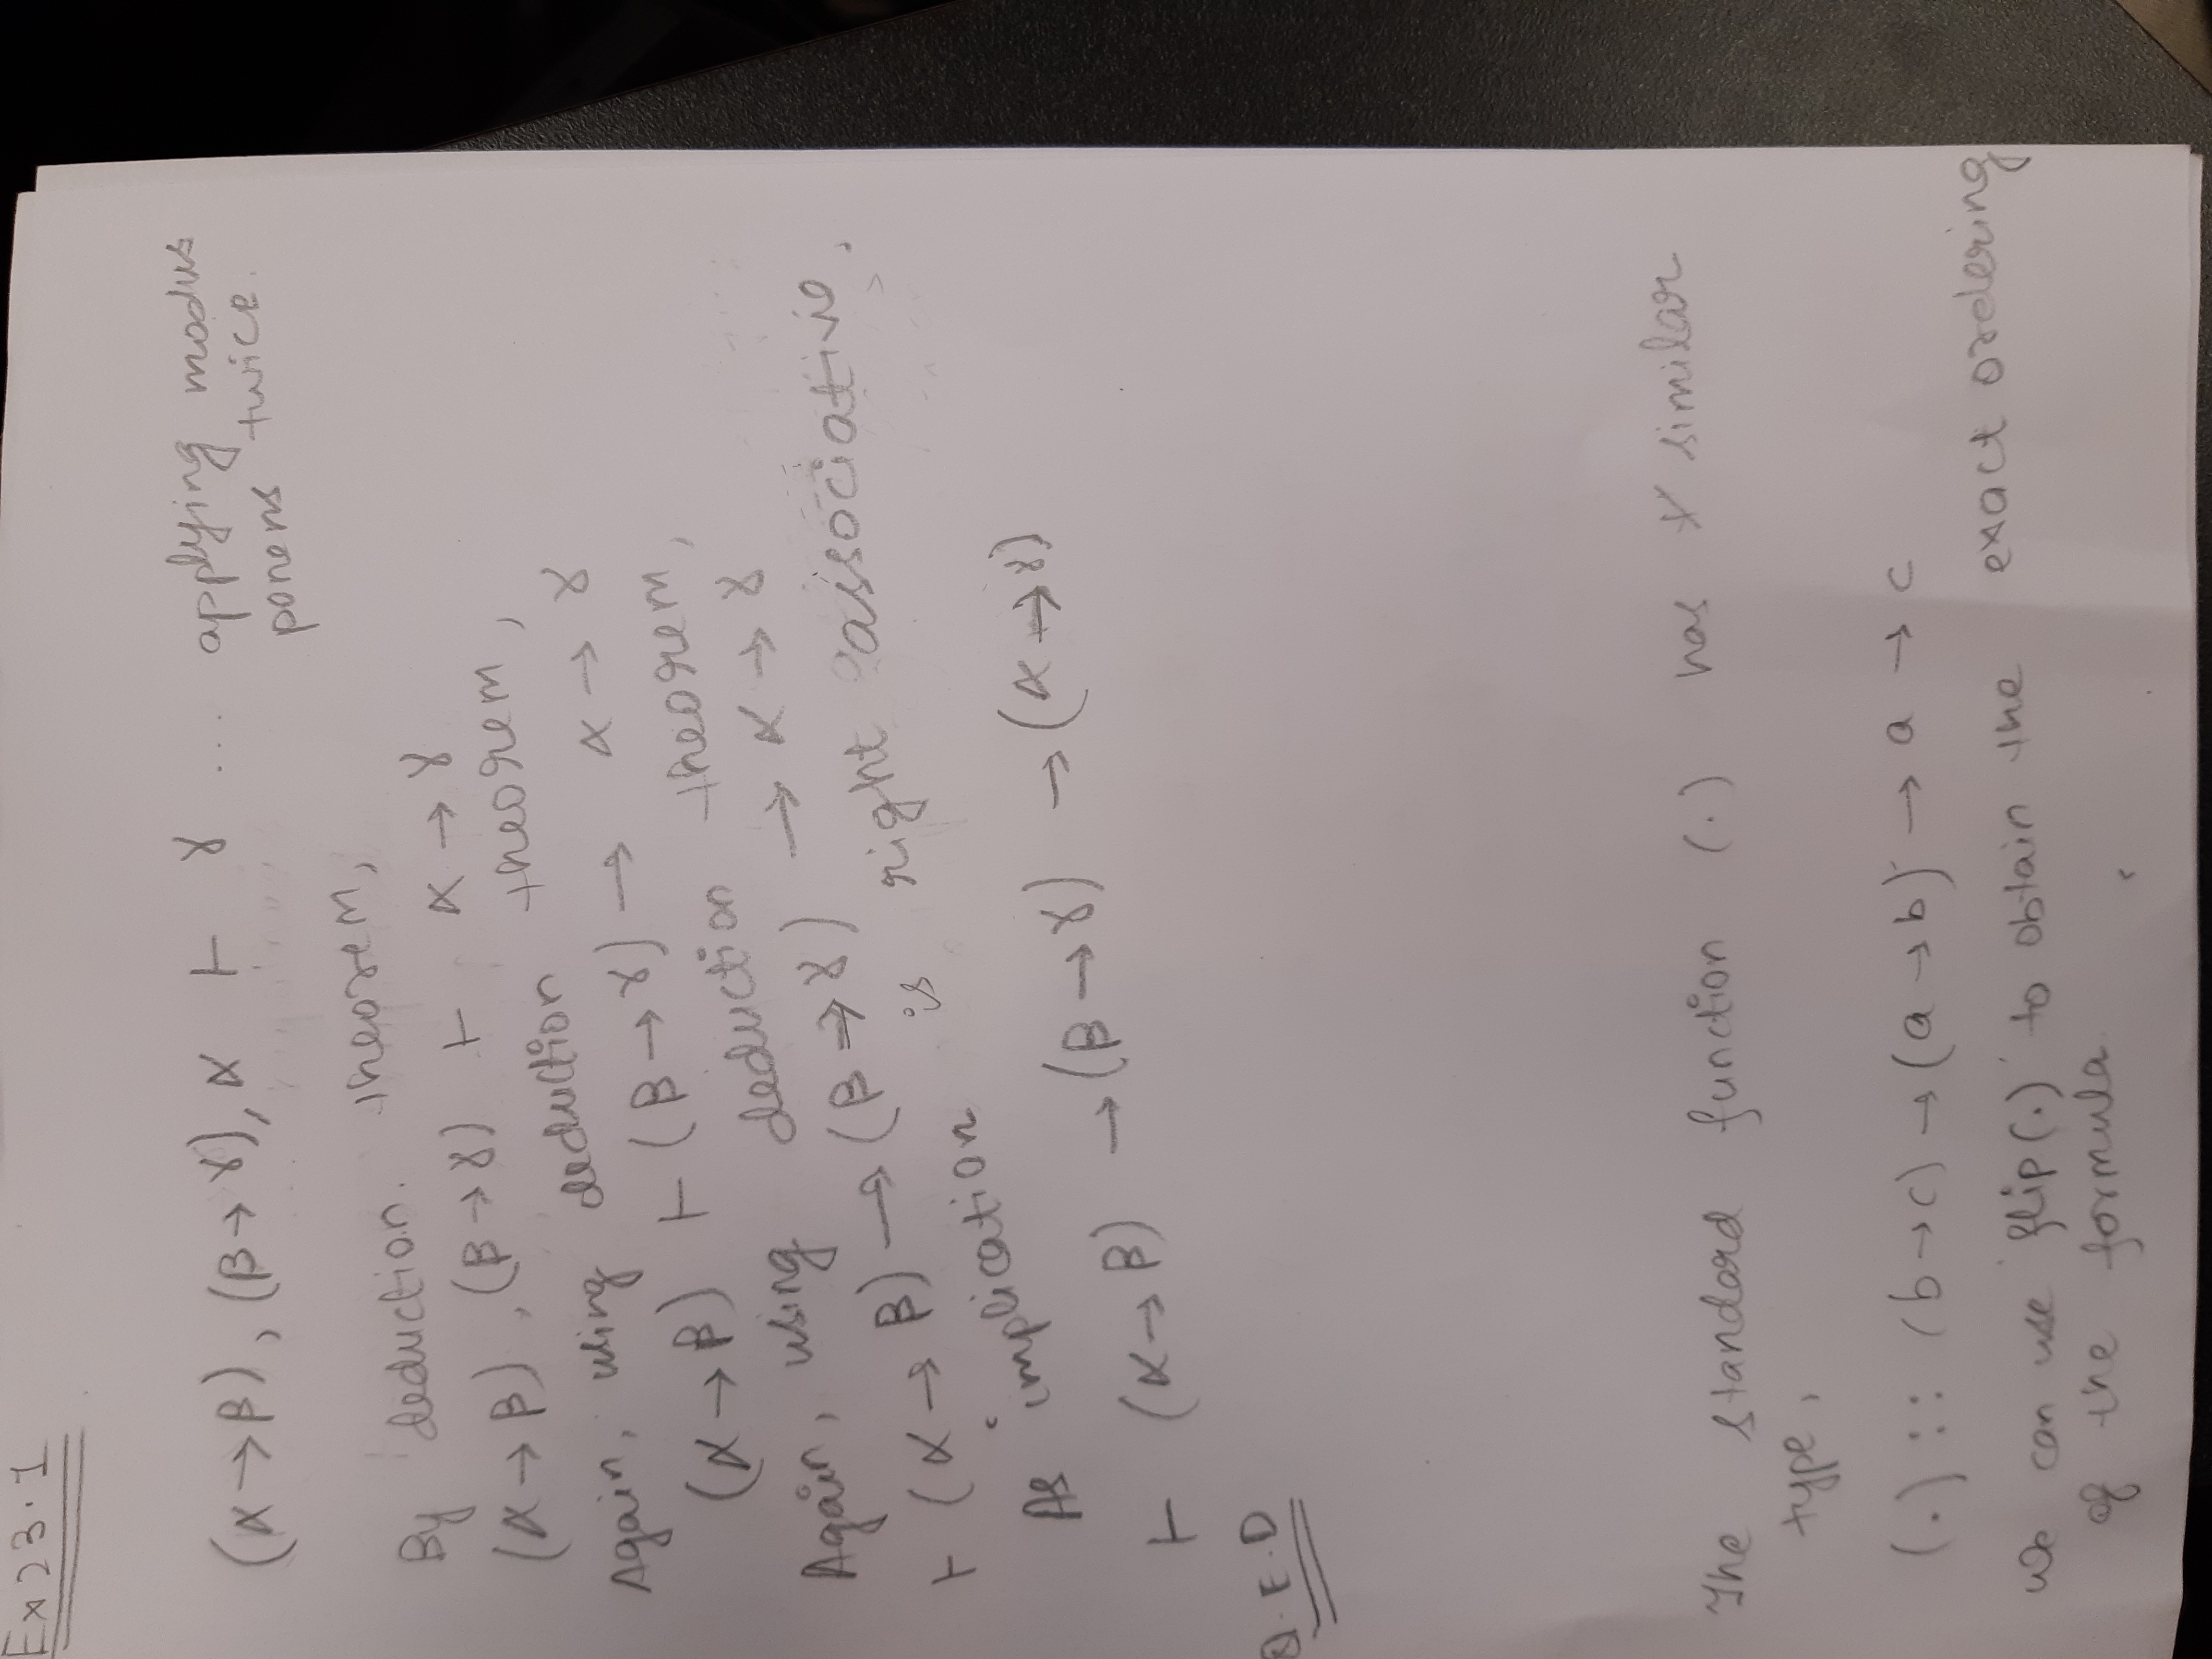 Ex 23.1
(α → β), (β → γ), α ⊢ γ ... applying modus
ponens twice.
By deduction. theorem,
(α → β), (β → γ) ⊢ α → γ
Again, using deduction theorem,
(α → β) ⊢ (β → γ) → α → γ
Again, using deduction theorem,
⊢ (α → β) → (β → γ) → α → γ
As implication is right associative,
⊢ (α → β) → (β → γ) → (α → γ)
Q.E.D
The standard function (.) has similar
type,
(.) :: (b → c) → (a → b) → a → c
We can use 'flip(.)' to obtain the exact ordering
of the formula.